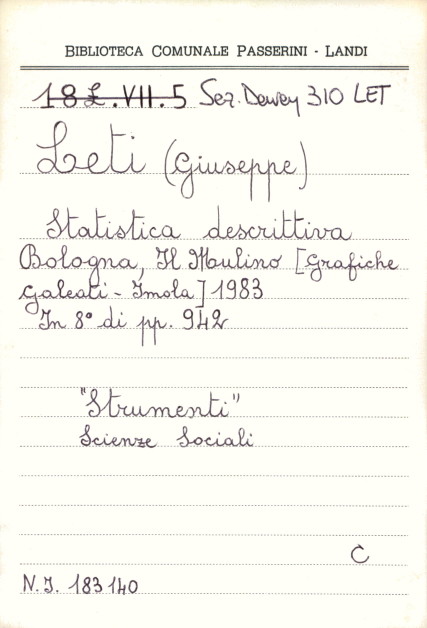 BIBLIOTECA COMUNALE PASSERINI - LANDI
18 £.VII.5 Sez. Dewey 310 LET
Leti (Giuseppe)
Statistica descrittiva
Bologna, Il Moulino [Grafiche
Galeati - Imola] 1983
In 8° di pp. 942
"Strumenti"
Scienze Sociali
C
N.I. 183140